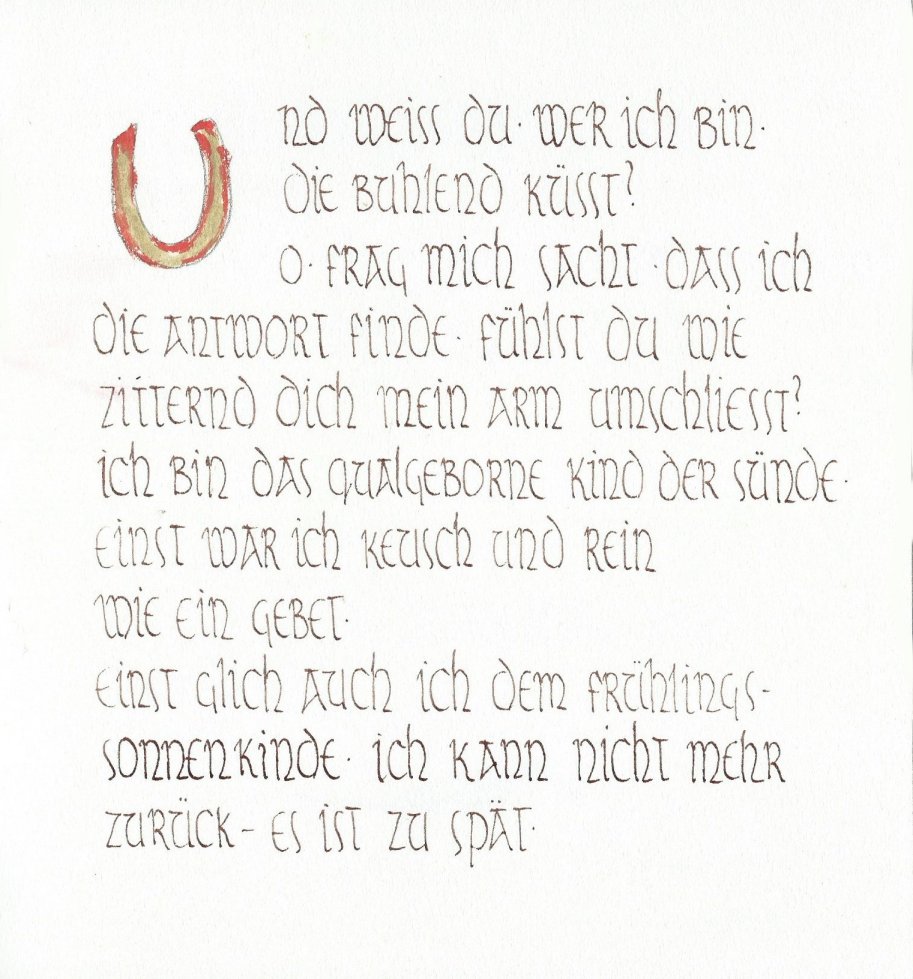 Und weiss du · wer ich bin ·
die buhlend küsst?
O · frag mich sacht · dass ich
die Antwort finde · fühlst du wie
zitternd dich mein Arm umschliesst?
ich bin das qualgeborne Kind der Sünde ·
einst war ich keusch und rein
wie ein Gebet ·
einst glich auch ich dem Frühlings-
sonnenkinde · ich kann nicht mehr
zurück - es ist zu spät ·